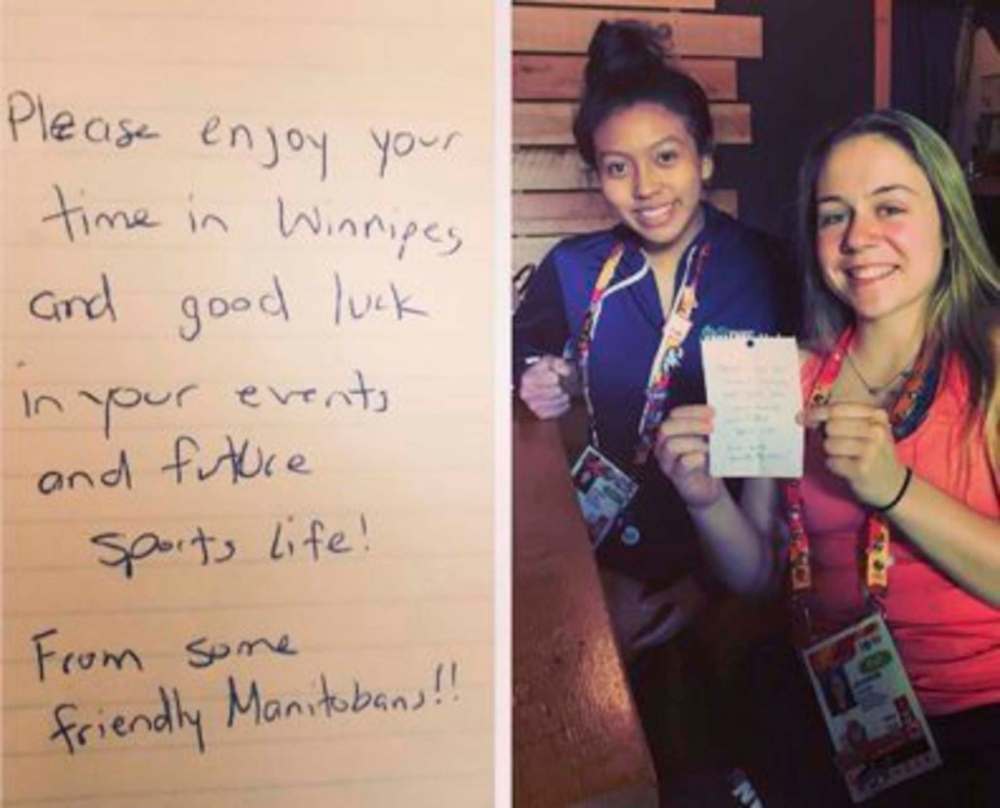 Please enjoy your
time in Winnipeg
and good luck
in your events
and future
sports life!
From some
friendly Manitobans!!